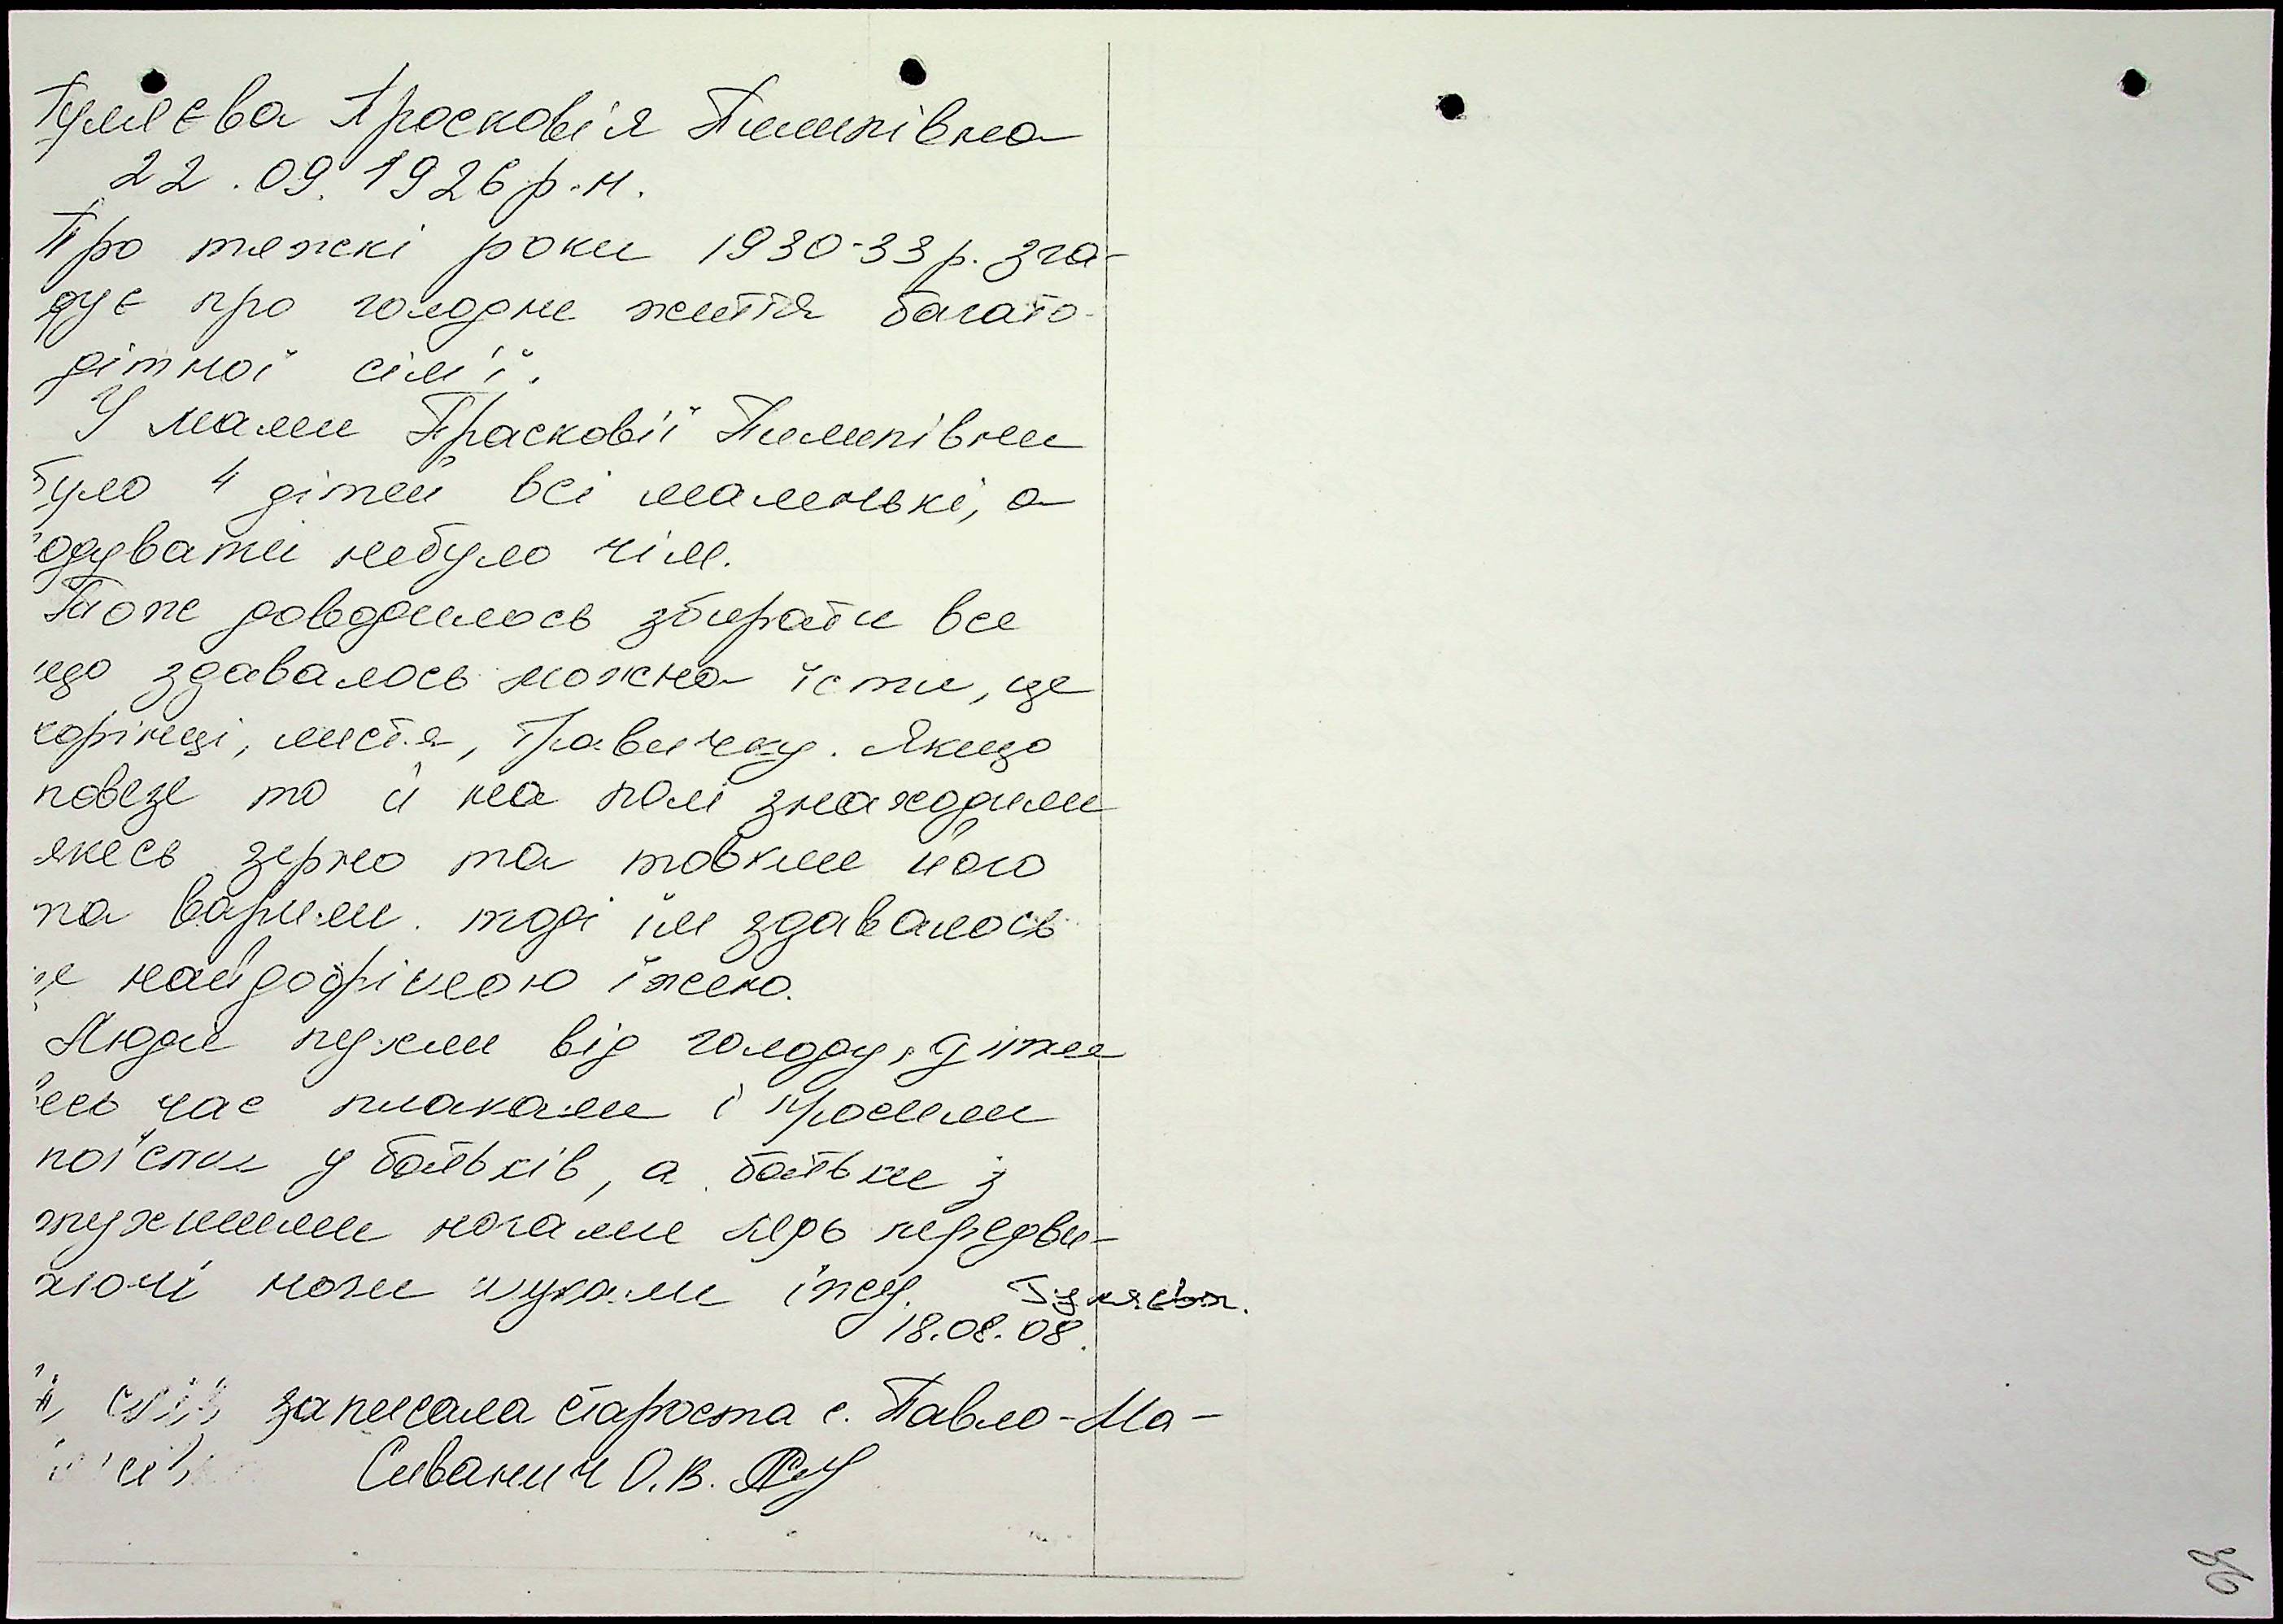 Гуляєва Просковія Пилипівна
22.09.1926 р.н.
Про тяжкі роки 1930-33 р. зга-
дує про голодне життя багато-
дітної сім'ї.
У мами Прасковії Пилипівни
було 4 дітей всі маленькі, а
годувати небуло чім.
Тож доводилось збирати все
що здавалось можна їсти, це
корінці, листя, травичку. Якщо
повезе то й на полі знаходили
якесь зерно та товкли його
та варили. тоді їм здавалось
це найдобрішою їжею.
Люди пухли від голоду, діти
весь час плакали і просили
поїсти у батьків, а батьки з
пухлими ногами ледь передви-
гаючі ноги шукали їжу. Гуляєва.
18.08.08.
слів записала староста с. Павло-Ма-
Сиванич О.В.
36